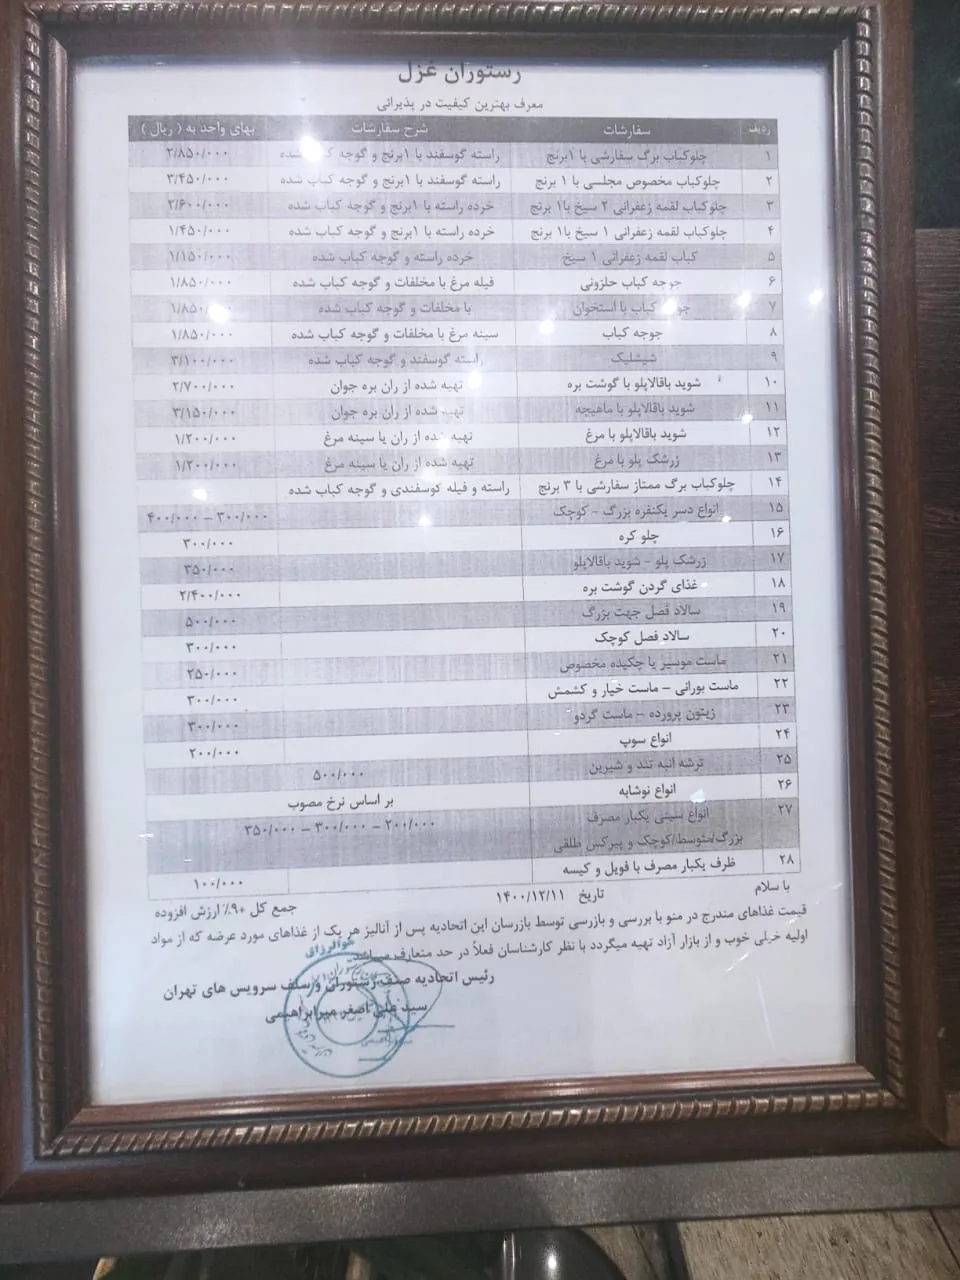 رستوران غزل
معرف بهترین کیفیت در پذیرائی
ردیف سفارشات شرح سفارشات بهای واحد به ( ریال )
۱ چلوکباب برگ سفارشی با ۱برنج راسته گوسفند با ۱برنج و گوجه کباب شده ۲/۸۵۰/۰۰۰
۲ چلوکباب مخصوص مجلسی با ۱ برنج راسته گوسفند با ۱برنج و گوجه کباب شده ۳/۴۵۰/۰۰۰
۳ چلوکباب لقمه زعفرانی ۲ سیخ با۱ برنج خرده راسته با ۱برنج و گوجه کباب شده ۲/۶۰۰/۰۰۰
۴ چلوکباب لقمه زعفرانی ۱ سیخ با۱ برنج خرده راسته با ۱برنج و گوجه کباب شده ۱/۴۵۰/۰۰۰
۵ کباب لقمه زعفرانی ۱ سیخ خرده راسته و گوجه کباب شده ۱/۱۵۰/۰۰۰
۶ جوجه کباب حلزونی فیله مرغ با مخلفات و گوجه کباب شده ۱/۸۵۰/۰۰۰
۷ جوجه کباب با استخوان با مخلفات و گوجه کباب شده ۱/۸۵۰/۰۰۰
۸ جوجه کباب سینه مرغ با مخلفات و گوجه کباب شده ۱/۸۵۰/۰۰۰
۹ شیشلیک راسته گوسفند و گوجه کباب شده ۳/۱۰۰/۰۰۰
۱۰ شوید باقالاپلو با گوشت بره تهیه شده از ران بره جوان ۲/۷۰۰/۰۰۰
۱۱ شوید باقالاپلو با ماهیچه تهیه شده از ران بره جوان ۳/۱۵۰/۰۰۰
۱۲ شوید باقالاپلو با مرغ تهیه شده از ران یا سینه مرغ ۱/۲۰۰/۰۰۰
۱۳ زرشک پلو با مرغ تهیه شده از ران یا سینه مرغ ۱/۲۰۰/۰۰۰
۱۴ چلوکباب برگ ممتاز سفارشی با ۳ برنج راسته و فیله گوسفندی و گوجه کباب شده
۱۵ انواع دسر یکنفره بزرگ - کوچک ۳۰۰/۰۰۰ – ۴۰۰/۰۰۰
۱۶ چلو کره ۳۰۰/۰۰۰
۱۷ زرشک پلو - شوید باقالاپلو ۳۵۰/۰۰۰
۱۸ غذای گردن گوشت بره ۲/۴۰۰/۰۰۰
۱۹ سالاد فصل جهت بزرگ ۵۰۰/۰۰۰
۲۰ سالاد فصل کوچک ۳۰۰/۰۰۰
۲۱ ماست موسیر یا چکیده مخصوص ۲۵۰/۰۰۰
۲۲ ماست بورانی - ماست خیار و کشمش ۳۰۰/۰۰۰
۲۳ زیتون پرورده - ماست گردو ۳۰۰/۰۰۰
۲۴ انواع سوپ ۲۰۰/۰۰۰
۲۵ ترشه انبه تند و شیرین ۵۰۰/۰۰۰
۲۶ انواع نوشابه بر اساس نرخ مصوب
۲۷ انواع سینی یکبار مصرف ۲۰۰/۰۰۰ – ۳۰۰/۰۰۰ – ۳۵۰/۰۰۰
بزرگ/متوسط/کوچک و پیرکس طلقی
۲۸ ظرف یکبار مصرف با فویل و کیسه ۱۰۰/۰۰۰
با سلام تاریخ ۱۴۰۰/۱۲/۱۱ جمع کل +۹٪ ارزش افزوده
قیمت غذاهای مندرج در منو با بررسی و بازرسی توسط بازرسان این اتحادیه پس از آنالیز هر یک از غذاهای مورد عرضه که از مواد
اولیه خیلی خوب و از بازار آزاد تهیه میگردد با نظر کارشناسان فعلاً در حد متعارف میباشد.
هوالرزاق
رئیس اتحادیه صنف رستوران و سلف سرویس های تهران
سید علی اصغر میرابراهیمی